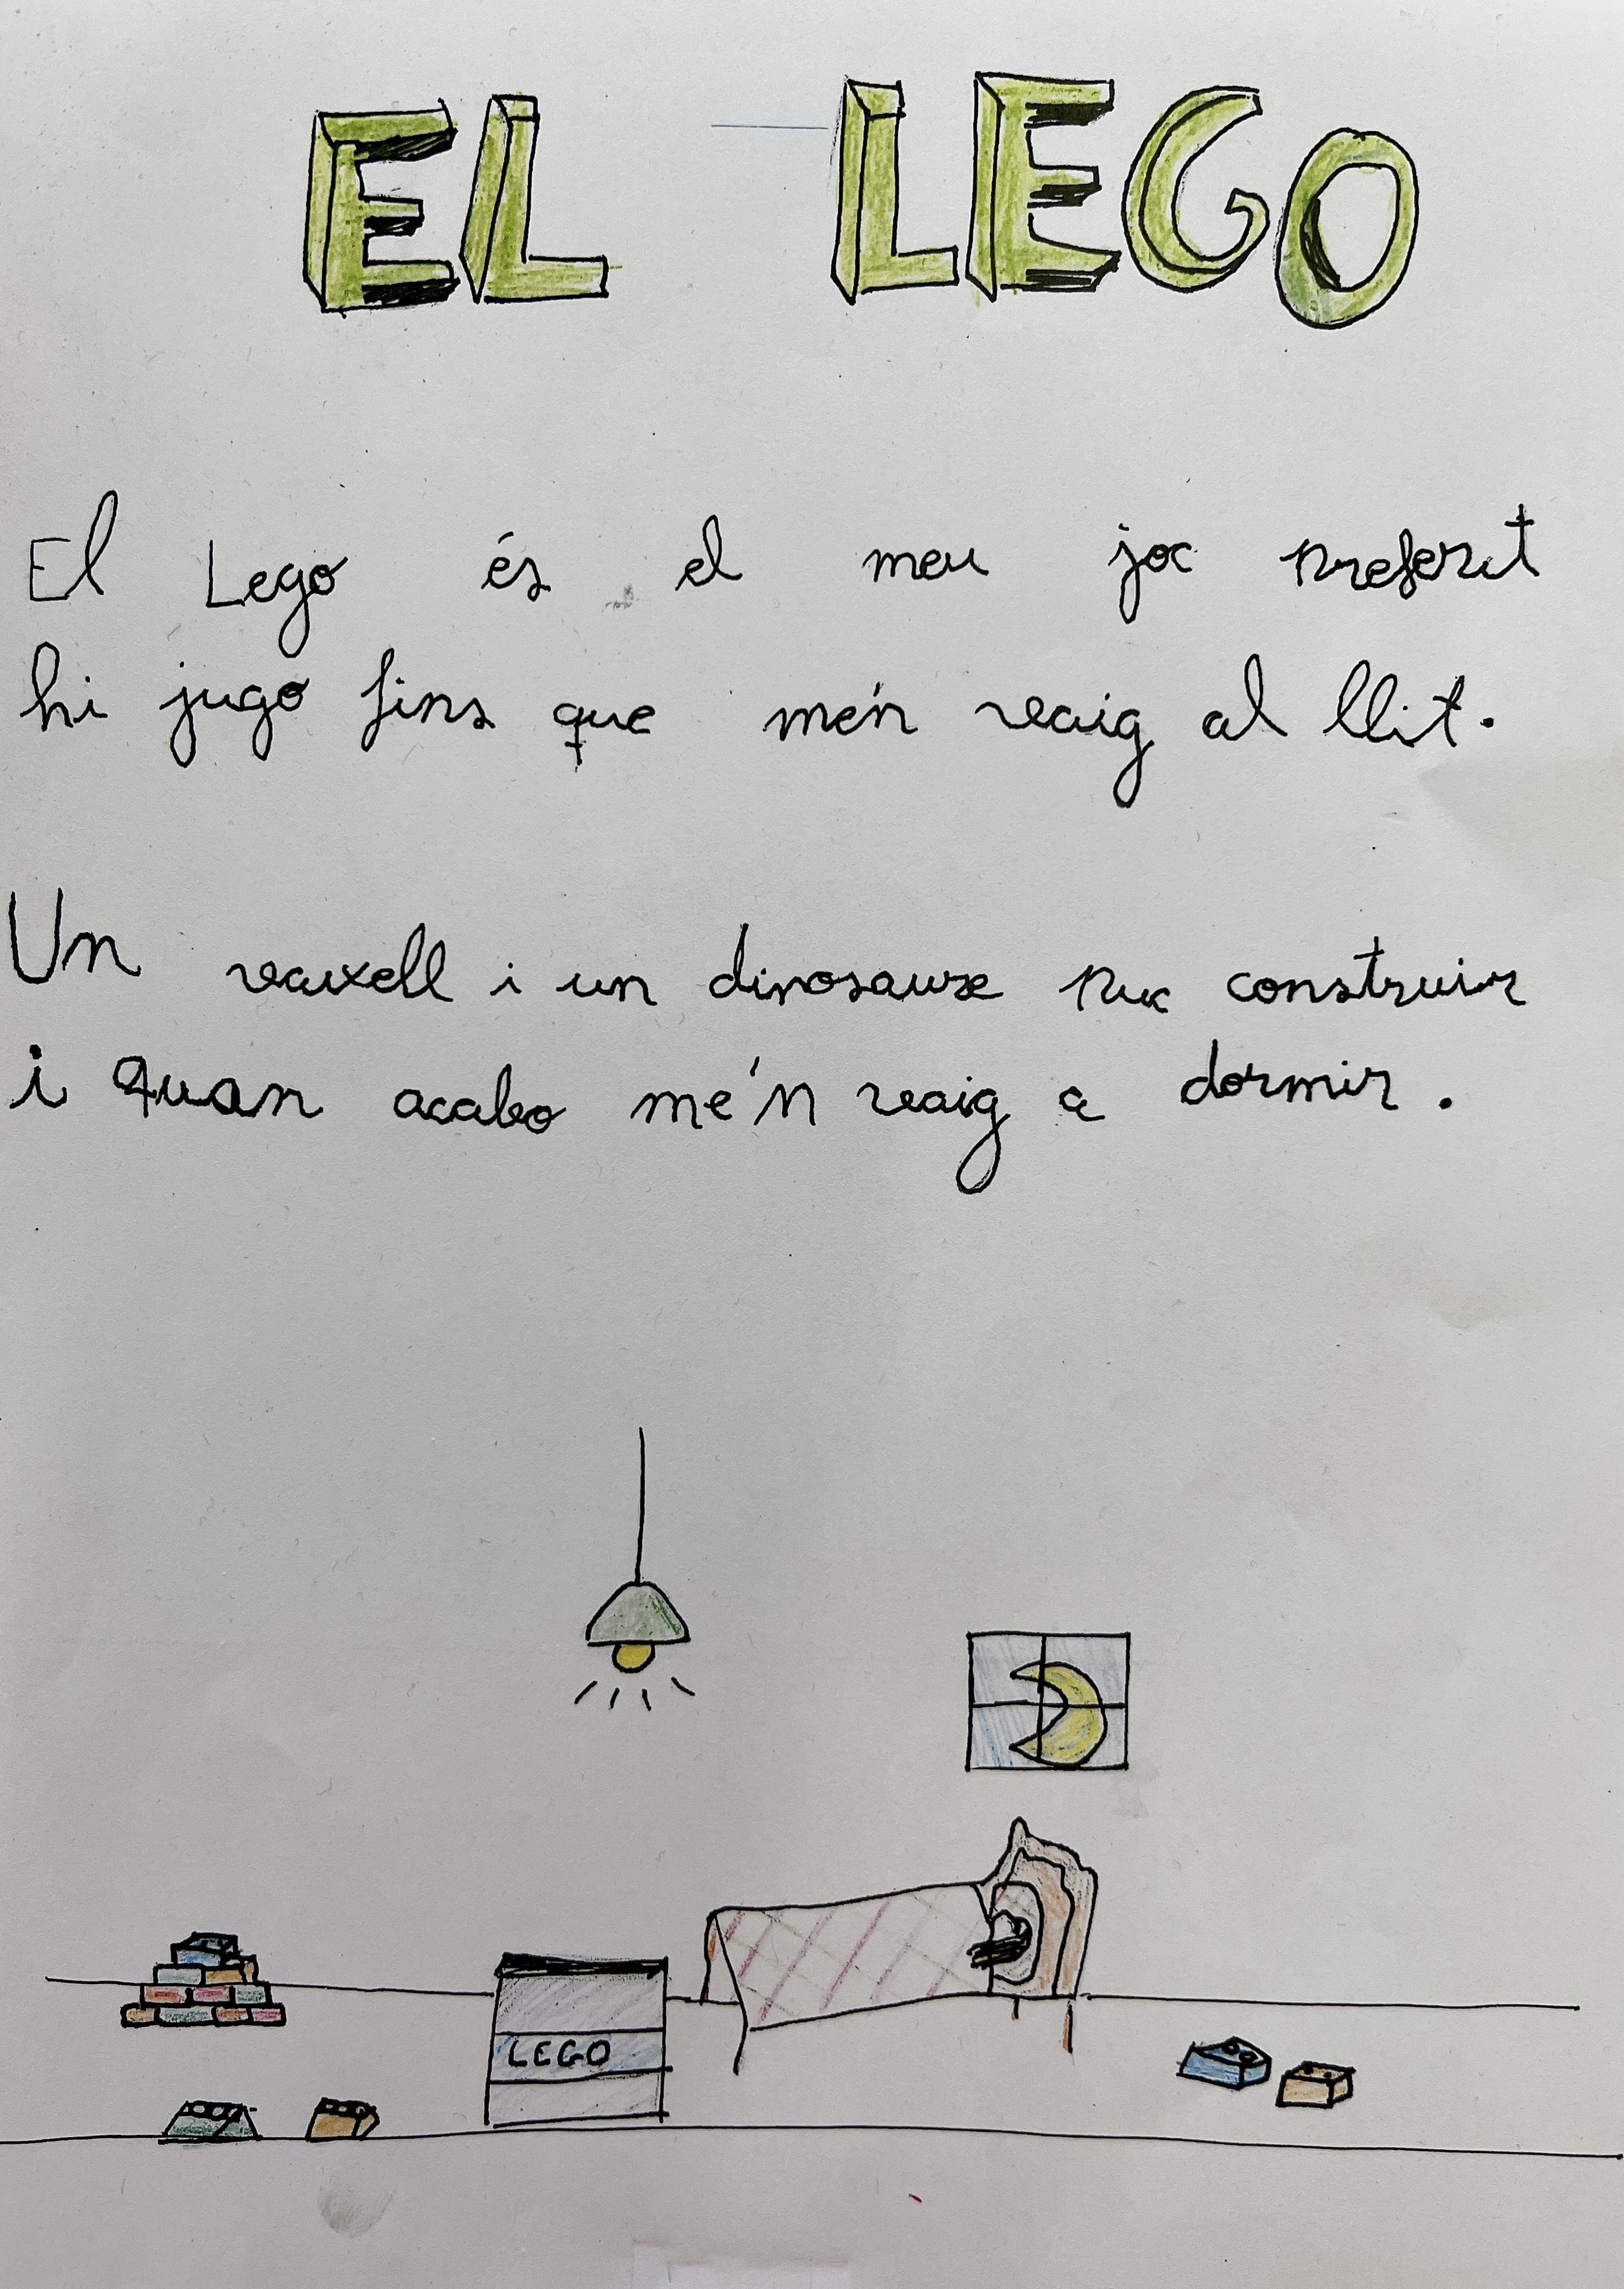 EL LEGO
El Lego és el meu joc preferit
hi jugo fins que me'n vaig al llit.
Un vaixell i un dinosaure puc construir
i quan acabo me'n vaig a dormir.
LEGO